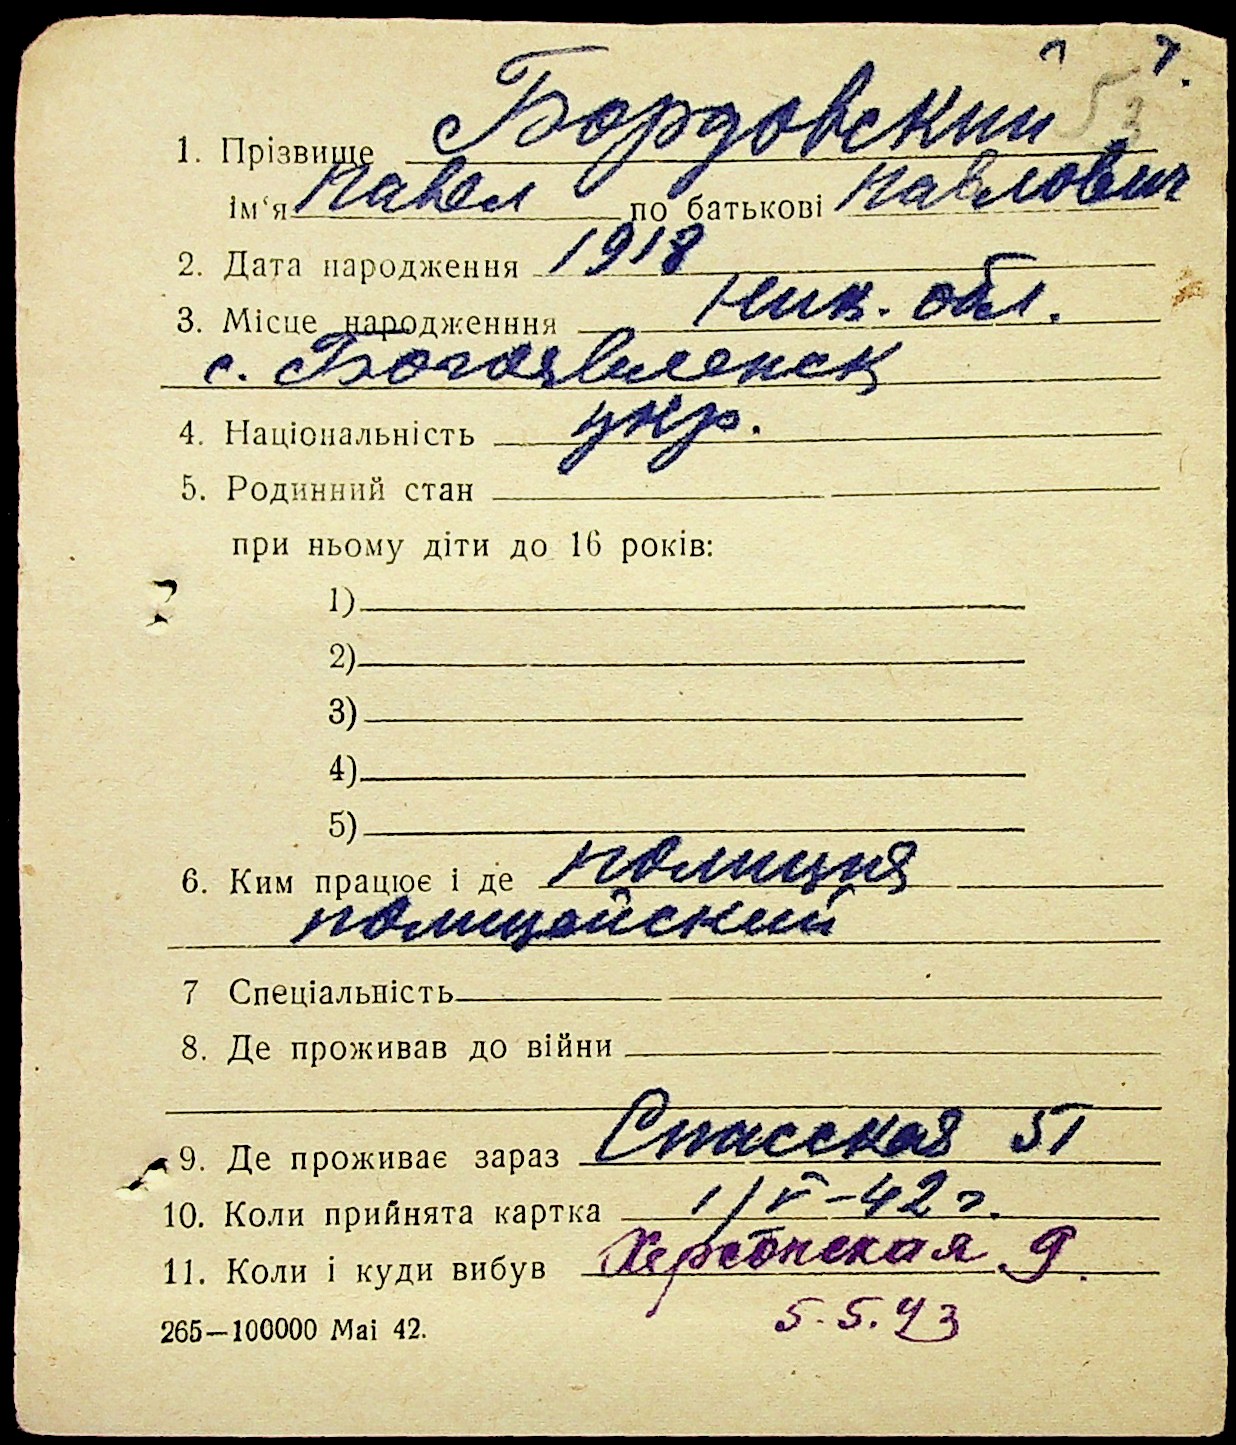 1. Прізвище Бордовский
ім‘я Павел по батькові Павлович
2. Дата народження 1918
3. Місце народженння Ник. обл.
с. Богоявленск
4. Національність укр.
5. Родинний стан
при ньому діти до 16 років:
1)
2)
3)
4)
5)
6. Ким працює і де полиция
полицейский
7 Спеціальність
8. Де проживав до війни
9. Де проживає зараз Спасская 51
10. Коли прийнята картка 1/V-42 г.
11. Коли і куди вибув Херсонская 9.
5.5.43
265—100000 Mai 42.